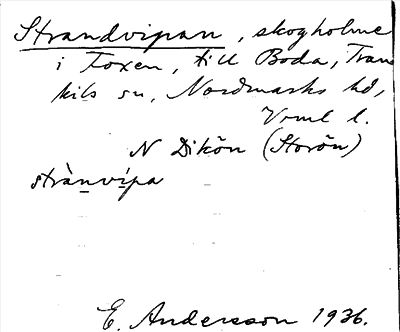 Strandvipan, skogholme
i Foxen, till Boda, Trans
kils sn, Nordmarks hd,
Vrml l.
N Dikön (Storön)
strànvípa
E. Andersson 1936.